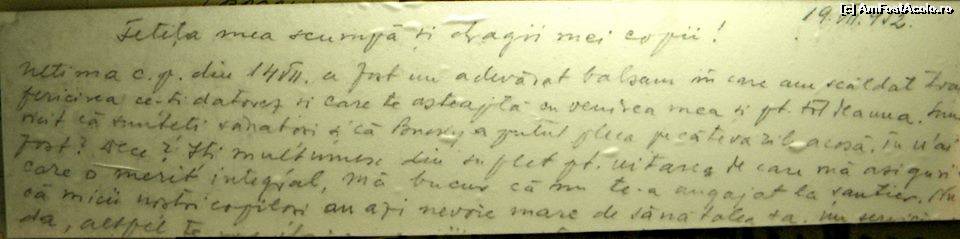 [c] AmFostAcolo.ro
19.VII.952.
Fetița mea scumpă și dragii mei copii!
Ultima c.p. din 14 VII. a fost un adevărat balsam în care am scăldat
fericirea ce-ți datorez și care te așteaptă cu venirea mea și pt.
că sunteți sănătoși și că a putut pleca pe câteva zile acasă. Tu n'ai
fost? Dece? Îți mulțumesc din suflet pt. uitarea de care mă asiguri
care o merit integral, mă bucur că nu te-a angajat la șantier.
că micii noștri copilași au azi nevoie mare de sănătatea ta. un serviciu
da, altfel te